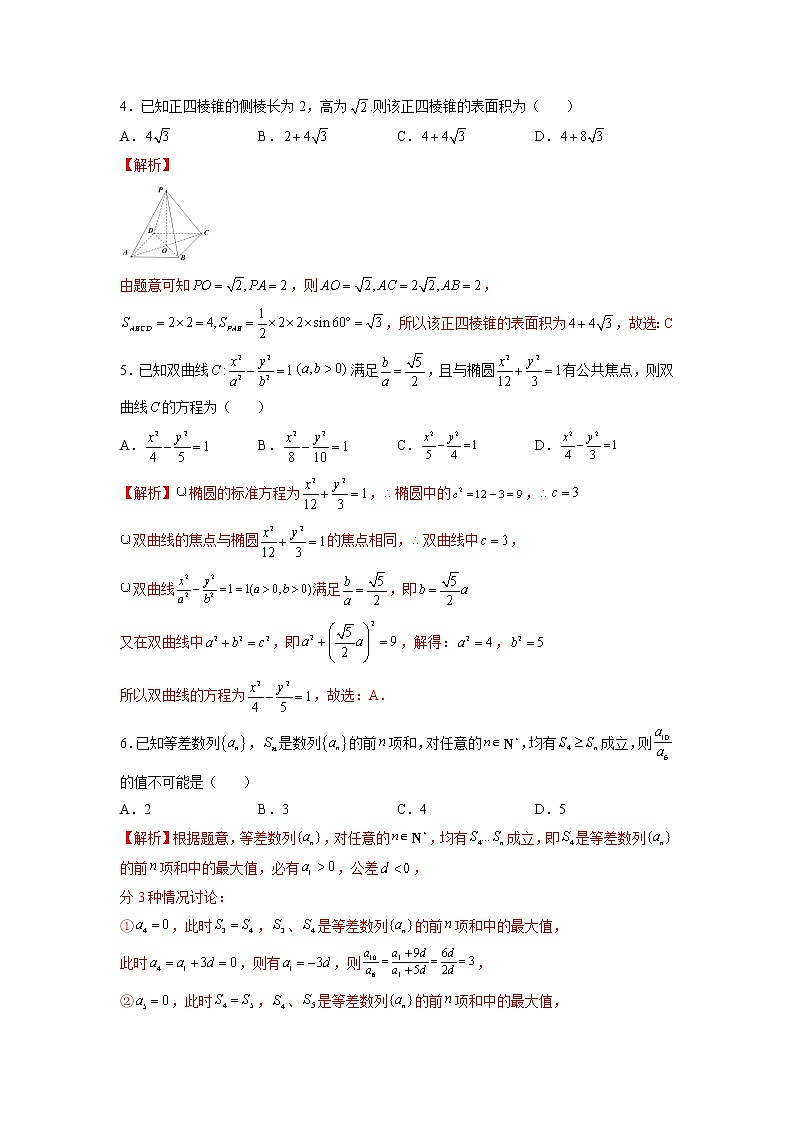 4．已知正四棱锥的侧棱长为 2，高为 √2 .则该正四棱锥的表面积为（　　）
A．4√3　　B．2+4√3　　C．4+4√3　　D．4+8√3
【解析】
P
D
C
A
O
B
由题意可知 PO=√2, PA=2，则 AO=√2, AC=2√2, AB=2，
S_{ABCD}=2×2=4, S_{PAB}=1/2×2×2×sin60°=√3，所以该正四棱锥的表面积为 4+4√3，故选：C
5．已知双曲线 C: x²/a² - y²/b² = 1 (a,b>0) 满足 b/a = √5/2，且与椭圆 x²/12 + y²/3 = 1 有公共焦点，则双
曲线 C 的方程为（　　）
A．x²/4 - y²/5 = 1　　B．x²/8 - y²/10 = 1　　C．x²/5 - y²/4 = 1　　D．x²/4 - y²/3 = 1
【解析】Q 椭圆的标准方程为 x²/12 + y²/3 = 1，∴椭圆中的 c²=12-3=9，∴ c=3
Q 双曲线的焦点与椭圆 x²/12 + y²/3 = 1 的焦点相同，∴双曲线中 c=3，
Q 双曲线 x²/a² - y²/b² = 1 = 1(a>0,b>0) 满足 b/a = √5/2，即 b = √5/2 a
又在双曲线中 a²+b²=c²，即 a²+(√5/2 a)²=9，解得：a²=4，b²=5
所以双曲线的方程为 x²/4 - y²/5 = 1，故选：A．
6．已知等差数列{aₙ}，Sₙ是数列{aₙ}的前 n 项和，对任意的 n∈N*，均有 S₄≥Sₙ 成立，则 a₁₀/a₆
的值不可能是（　　）
A．2　　B．3　　C．4　　D．5
【解析】根据题意，等差数列{aₙ}，对任意的 n∈N*，均有 S₄…Sₙ 成立，即 S₄ 是等差数列{aₙ}
的前 n 项和中的最大值，必有 a₁>0，公差 d<0，
分 3 种情况讨论：
①a₄=0，此时 S₃=S₄，S₃、S₄是等差数列{aₙ}的前 n 项和中的最大值，
此时 a₄=a₁+3d=0，则有 a₁=-3d，则 a₁₀/a₆ = (a₁+9d)/(a₁+5d) = 6d/2d = 3，
②a₅=0，此时 S₄=S₅，S₄、S₅是等差数列{aₙ}的前 n 项和中的最大值，